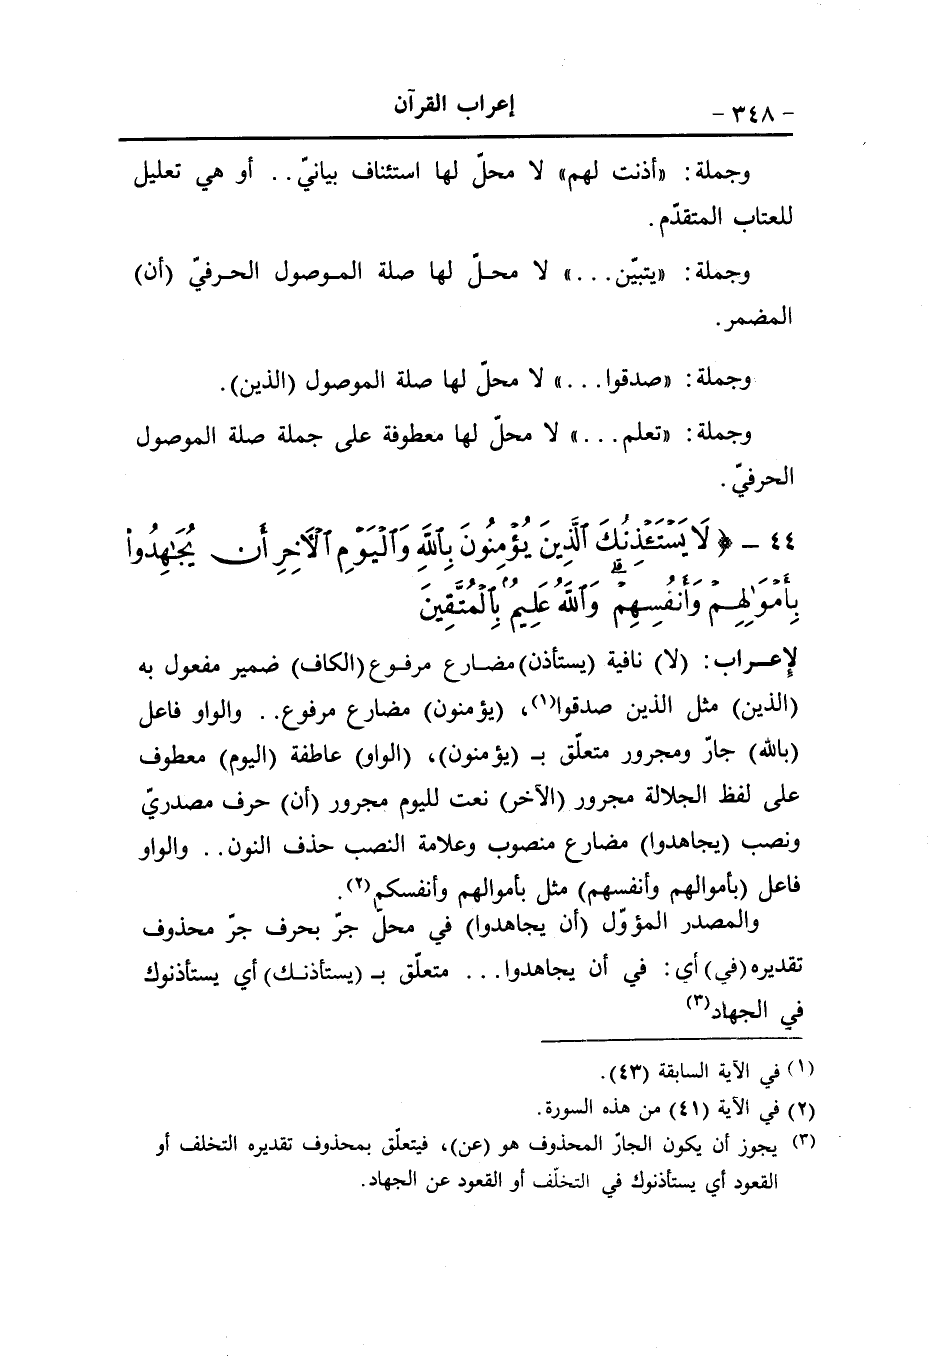 - ٣٤٨ -
إعراب القرآن
وجملة: «أذنت لهم» لا محلّ لها استئناف بيانيّ.. أو هي تعليل
للعتاب المتقدّم.
وجملة: «يتبيّن...» لا محـلّ لها صلة المـوصول الحـرفيّ (أن)
المضمر.
وجملة: «صدقوا...» لا محلّ لها صلة الموصول (الذين).
وجملة: «تعلم...» لا محلّ لها معطوفة على جملة صلة الموصول
الحرفيّ.
٤٤ - ﴿ لَا يَسْتَـْٔذِنُكَ ٱلَّذِينَ يُؤْمِنُونَ بِٱللَّهِ وَٱلْيَوْمِ ٱلْـَٔاخِرِ أَن يُجَـٰهِدُوا۟
بِأَمْوَٰلِهِمْ وَأَنفُسِهِمْ ۗ وَٱللَّهُ عَلِيمٌۢ بِٱلْمُتَّقِينَ
لإعـراب: (لا) نافية (يستأذن) مضـارع مرفـوع (الكاف) ضمير مفعول به
(الذين) مثل الذين صدقوا(١)، (يؤمنون) مضارع مرفوع.. والواو فاعل
(بالله) جارّ ومجرور متعلّق بـ (يؤمنون)، (الواو) عاطفة (اليوم) معطوف
على لفظ الجلالة مجرور (الآخر) نعت لليوم مجرور (أن) حرف مصدريّ
ونصب (يجاهدوا) مضارع منصوب وعلامة النصب حذف النون.. والواو
فاعل (بأموالهم وأنفسهم) مثل بأموالهم وأنفسكم(٢).
والمصدر المؤوّل (أن يجاهدوا) في محلّ جرّ بحرف جرّ محذوف
تقديره (في) أي: في أن يجاهدوا... متعلّق بـ (يستأذنـك) أي يستأذنوك
في الجهاد(٣)
(١) في الآية السابقة (٤٣).
(٢) في الآية (٤١) من هذه السورة.
(٣) يجوز أن يكون الجارّ المحذوف هو (عن)، فيتعلّق بمحذوف تقديره التخلف أو
القعود أي يستأذنوك في التخلّف أو القعود عن الجهاد.